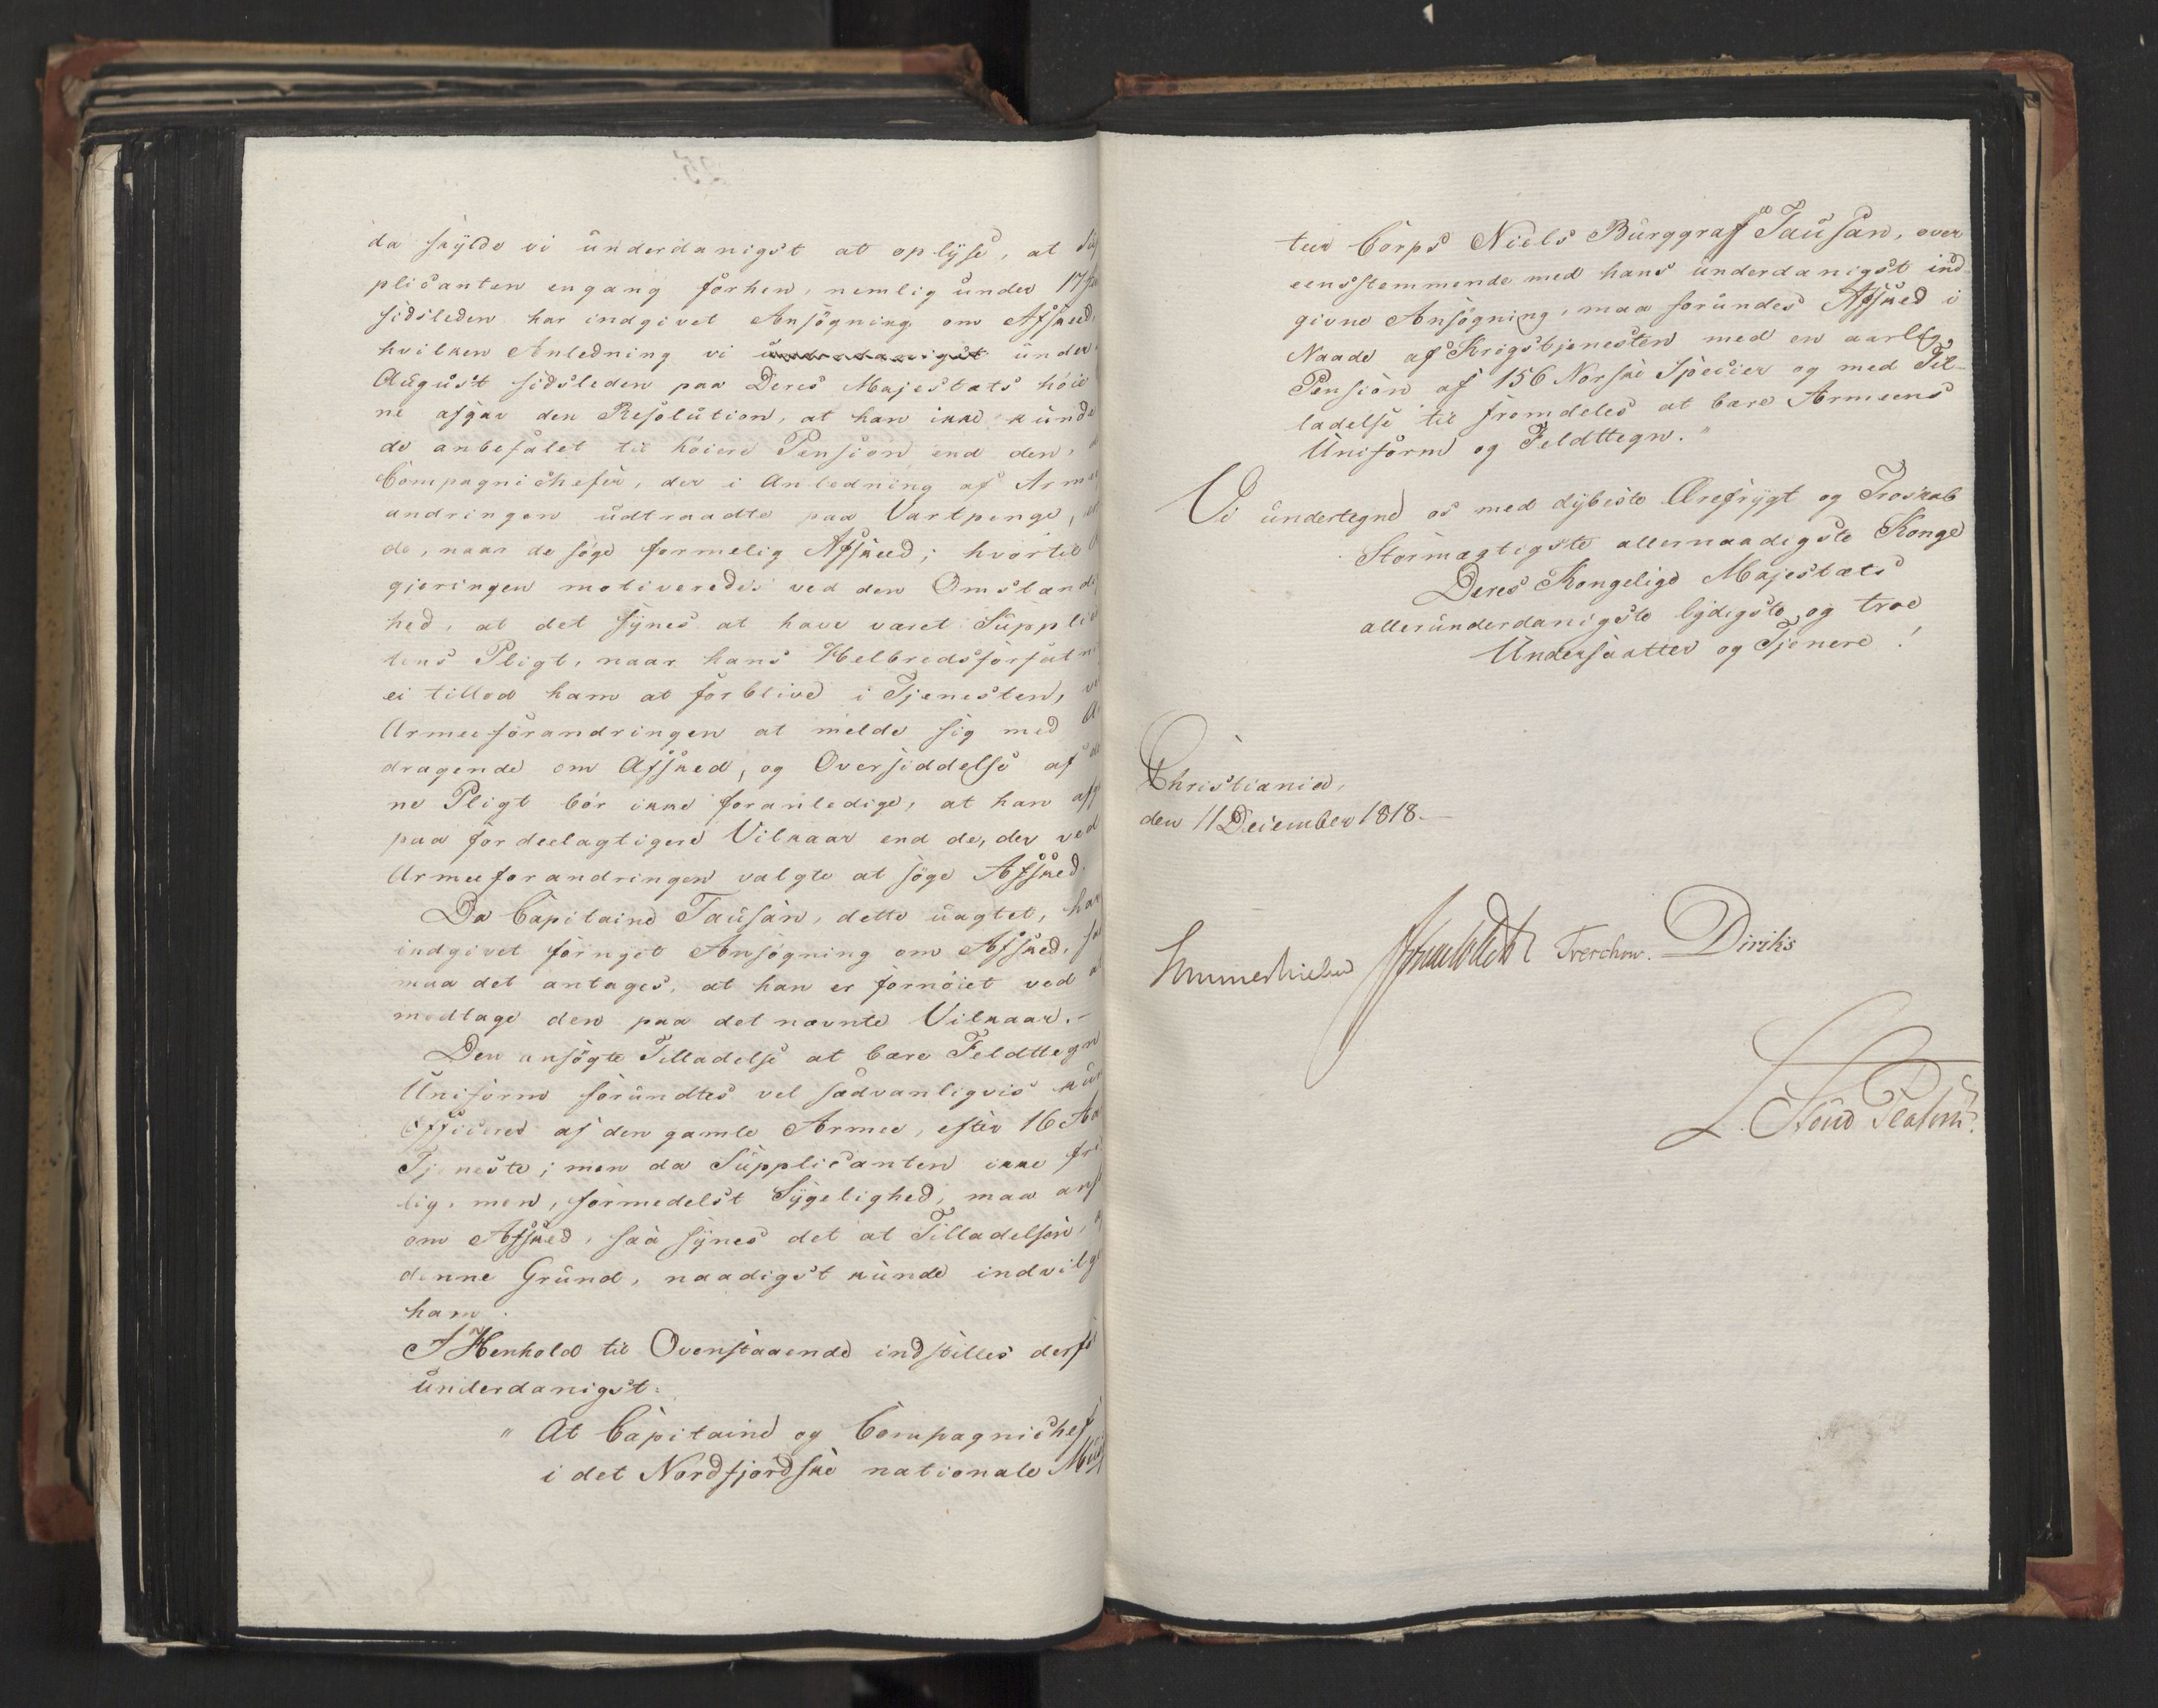 da skylde vi underdanigst at oplyse, at Sup
plicanten engang forhen, nemlig under 17
sidsleden har indgivet Ansögning om Afskeed,
hvilken Anledning vi underdanigst under
August sidsleden paa Deres Majestæts höie
ne afgav den Resolution, at han ikke kunde
de anbefalet til höiere Pension end den,
Compagnichefer, der i Anledning af Arme
andringen udtraadte paa Vartpenge,
de, naar de söge formelig Afskeed; hvortil
gjeringen motiveredes ved den Omstændi
hed, at det synes at have været Supplic
tens Pligt, naar hans Helbredsforfatn
ei tillod ham at forblive i Tjenesten,
Armeeforandringen at melde sig med
dragende om Afskeed, og Oversiddelse af
ne Pligt bör ikke foranledige, at han
paa fordeelagtigere Vilkaar end de, der ved
Armeeforandringen valgte at söge Afskeed.
Da Capitaine Tausan, dette uagtet, har
indgivet fornyet Ansögning om Afskeed,
maa det antages, at han er fornöiet ved at
modtage den paa det nævnte Vilkaar.-
Den ansögte Tilladelse at bære Feldttegn
Uniform forundtes vel sædvanligvis kun
Officerer af den gamle Armee, efter 16 Aa
Tjeneste; men da Supplicanten ikke fri
lig, men, formedelst Sygelighed, maa ansö
om Afskeed, saa synes det at Tilladelsen,
denne Grund, naadigst kunde indvilge
ham.
I Henhold til Ovenstaaende indstilles derfo
underdanigst:
" At Capitaine og Compagnichef
i det Nordfjordske nationale Mus
teer Corps Niels Burggraf Tausan, over
eensstemmende med hans underdanigst ind
givne Ansögning, maa forundes Afskeed i
Naade af Krigstjenesten med en aarlig
Pension af 156 Norske Specier og med Til-
ladelse til fremdeles at bære Armeens
Uniform og Feldttegn."
Vi undertegne os med dybeste Ærefrygt og Troskab
Stormægtigste allernaadigste Konge
Deres Kongelige Majestæts
allerunderdanigste lydigste og troe
Undersaatter og Tjenere!
Christiania,
den 11 December 1818.-
Sommerhielm Treschow. Diriks
L. Stoud Platou